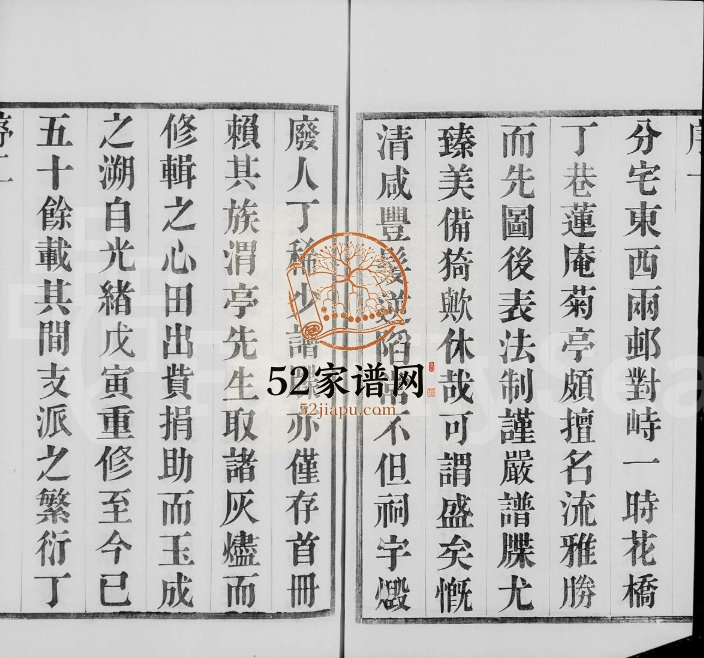 序一
分宅東西兩邨對峙一時花橋
丁巷蓮庵菊亭頗擅名流雅勝
而先圖後表法制謹嚴譜牒尤
臻美備猗歟休哉可謂盛矣慨
清咸豐髮逆陷 不但祠宇燬
廢人丁稀少譜 亦僅存首冊
賴其族渭亭先生取諸灰燼而
修輯之心田出貲捐助而玉成
之溯自光緒戊寅重修至今已
五十餘載其間支派之繁衍丁
序二
52家谱网
52jiapu.com